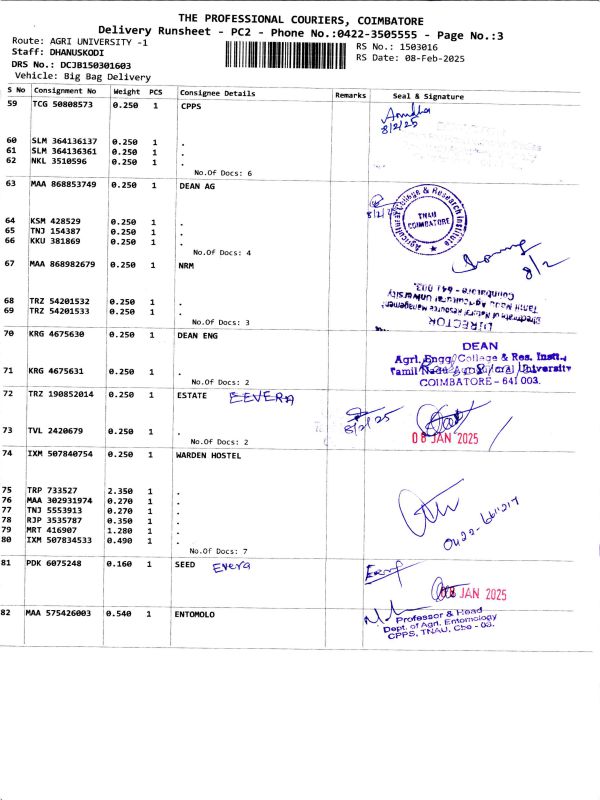 THE PROFESSIONAL COURIERS, COIMBATORE
Delivery Runsheet - PC2 - Phone No.:0422-3505555 - Page No.:3
Route: AGRI UNIVERSITY -1
RS No.: 1503016
Staff: DHANUSKODI
RS Date: 08-Feb-2025
DRS No.: DCJB150301603
Vehicle: Big Bag Delivery
S No Consignment No Weight PCS Consignee Details Remarks Seal & Signature
59 TCG 50808573 0.250 1 CPPS
8/2/25
60 SLM 364136137 0.250 1 .
61 SLM 364136361 0.250 1 .
62 NKL 3510596 0.250 1 .
No.Of Docs: 6
63 MAA 868853749 0.250 1 DEAN AG
Agricultural College & Research Institute
TNAU
COIMBATORE
64 KSM 428529 0.250 1 .
65 TNJ 154387 0.250 1 .
66 KKU 381869 0.250 1 .
No.Of Docs: 4
67 MAA 868982679 0.250 1 NRM
8/2
68 TRZ 54201532 0.250 1 .
69 TRZ 54201533 0.250 1 .
No.Of Docs: 3
DIRECTOR
Directorate of Natural Resource Management
Tamil Nadu Agricultural University
Coimbatore - 641 003.
70 KRG 4675630 0.250 1 DEAN ENG
DEAN
Agrl. Engg. College & Res. Instt.,
Tamil Nadu Agricultural University
COIMBATORE - 641 003.
71 KRG 4675631 0.250 1 .
No.Of Docs: 2
72 TRZ 190852014 0.250 1 ESTATE EEVERA
8/2/25
08 JAN 2025
73 TVL 2420679 0.250 1 .
No.Of Docs: 2
74 IXM 507840754 0.250 1 WARDEN HOSTEL
75 TRP 733527 2.350 1 .
76 MAA 302931974 0.270 1 .
77 TNJ 5553913 0.270 1 .
78 RJP 3535787 0.350 1 .
79 MRT 416907 1.280 1 .
80 IXM 507834533 0.490 1 .
No.Of Docs: 7
0422-6611217
81 PDK 6075248 0.160 1 SEED Evera
08 JAN 2025
82 MAA 575426003 0.540 1 ENTOMOLO
Professor & Head
Dept. of Agrl. Entomology
CPPS, TNAU, Cbe - 03.